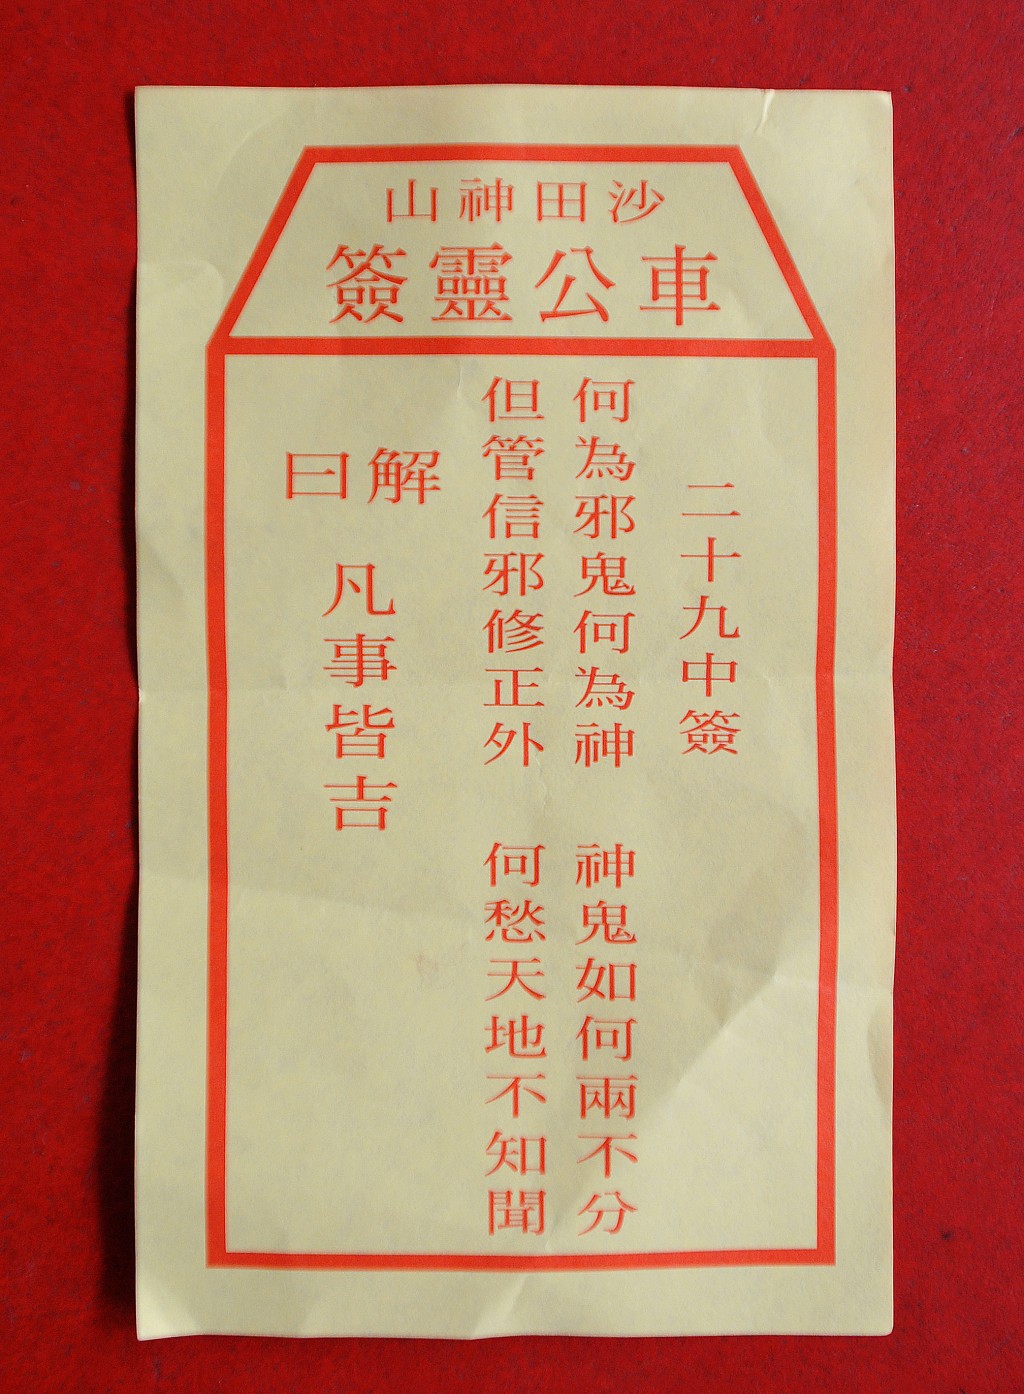 沙田神山
車公靈簽
二十九中簽
何為邪鬼何為神　神鬼如何兩不分
但管信邪修正外　何愁天地不知聞
解曰
凡事皆吉